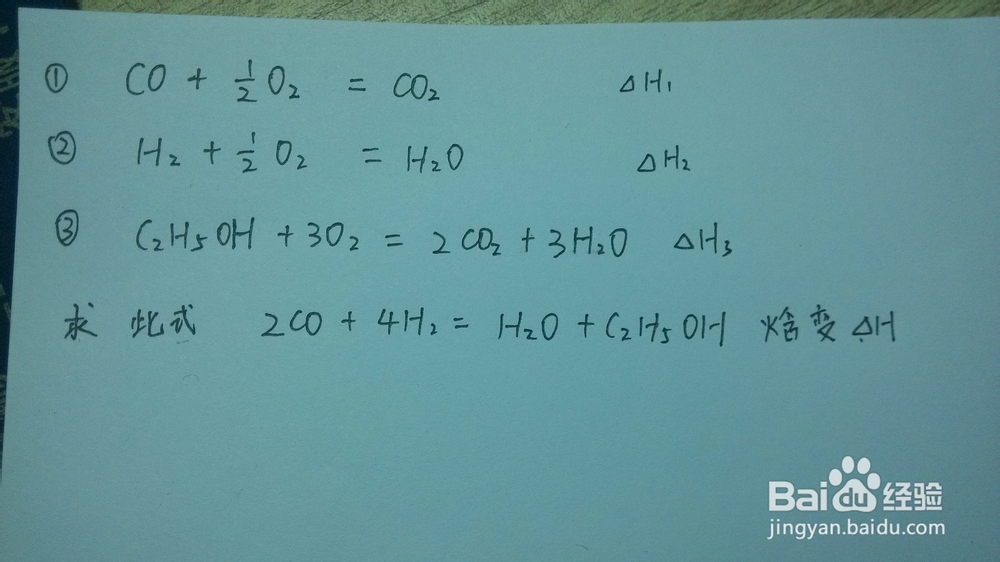 ① CO + 1/2 O₂ = CO₂ △H₁
② H₂ + 1/2 O₂ = H₂O △H₂
③ C₂H₅OH + 3O₂ = 2CO₂ + 3H₂O △H₃
求 此式 2CO + 4H₂ = H₂O + C₂H₅OH 焓变 △H
Baidu 经验
jingyan.baidu.com